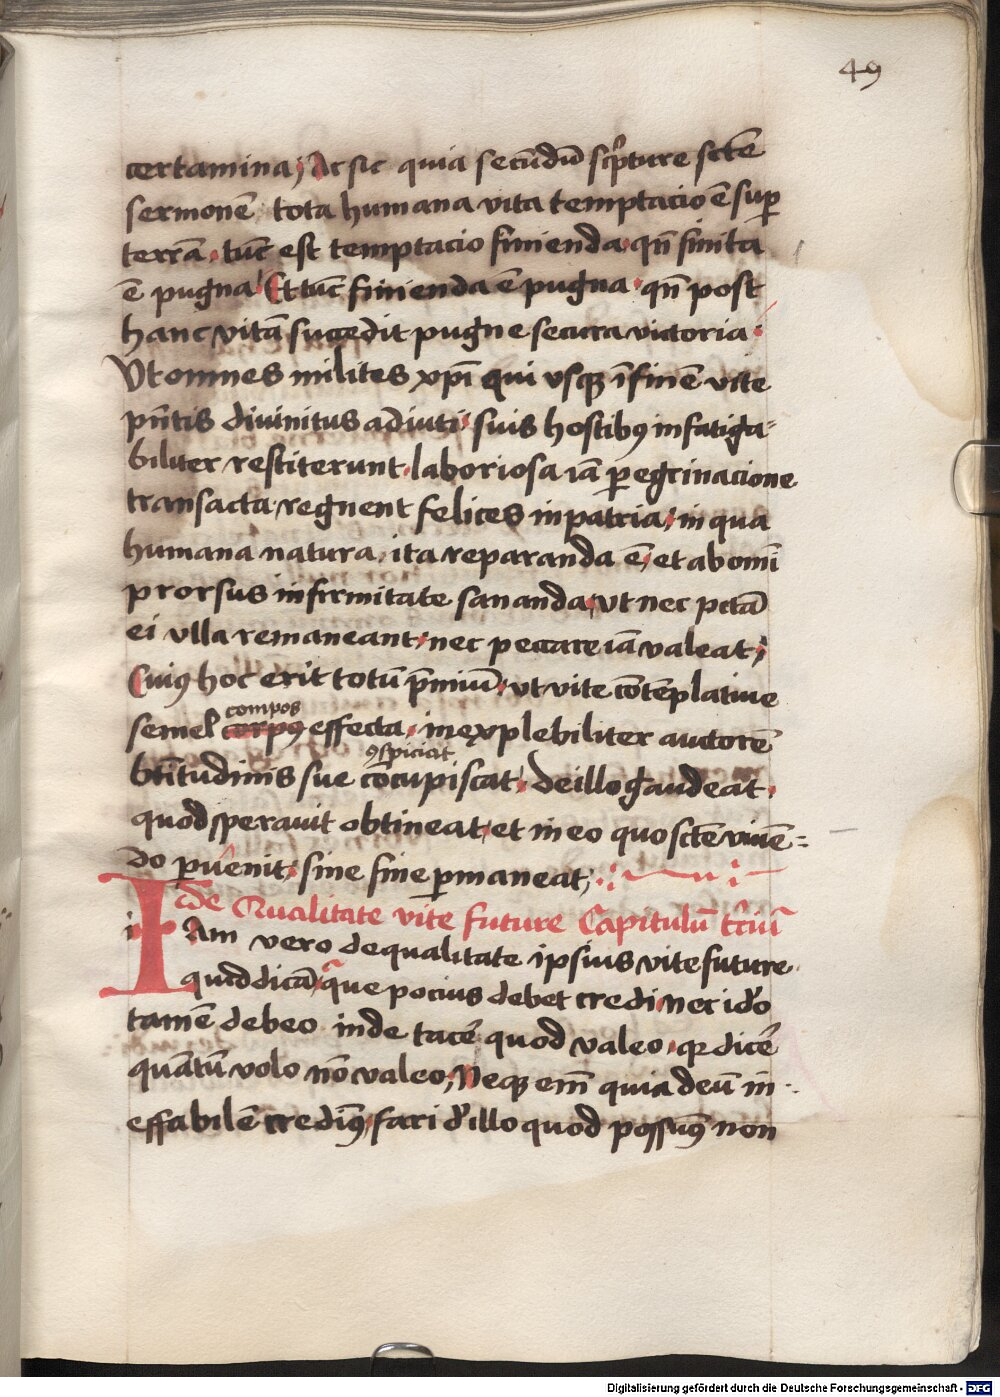 49
certamina; Ac sic quia secūdū sc̄pture sctē
sermonē, tota humana vita temptacio ē sup
terrā. tūc est temptacio finienda. qn̄ finita
ē pugna Et tūc finienda ē pugna. qn̄ post
hanc vitā succedit pugne secura victoria.
Vt omnes milites xpī qui vsqꝫ ī finē vite
pn̄tis divinitus adiuti suis hostibꝰ infatiga⸗
biliter restiterunt. laboriosa iā ꝑegrinacione
transacta. regnent felices in patria, in qua
humana natura, ita reparanda ē, et ab omī
prorsus infirmitate sananda, vt nec pctā
ei vlla remaneant, nec peccare iā valeat;
Cuiꝰ hoc erit totū p̄miū. vt vite cōtēplative
compos
semel corpꝰ effecta. inexplebiliter auctorē
ꝯspiciat
btītudinis sue cōcupiscat. de illo gaudeat.
quod speravit obtineat, et in eo quo sctē vivē⸗
do ꝑvēnit, sine fine ꝑmaneat;
de Qualitate vite future Capitulū t̄ciū
i IAm vero de qualitate ipsius vite future
quid dicā, que pocius debet credi, nec id'o
tamē debeo inde tacē quod valeo, qꝛ dicē
quātū volo nō valeo, Neqꝫ em̄ quia deū in⸗
effabilē credimꝰ, fari d' illo quod possumꝰ non
Digitalisierung gefördert durch die Deutsche Forschungsgemeinschaft - DFG